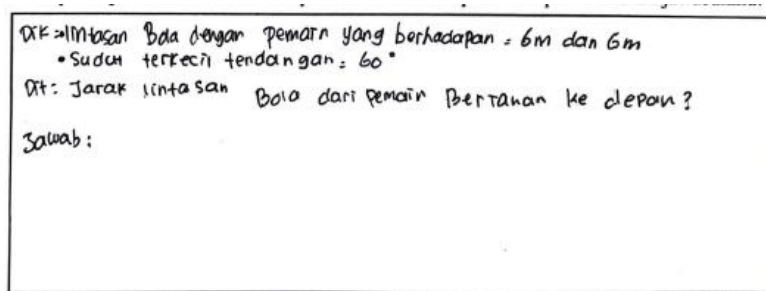 Dik : • lintasan Bola dengan pemain yang berhadapan = 6m dan 6m
• Sudut terkecil tendangan = 60°
Dit : Jarak lintasan Bola dari pemain Bertahan ke depan ?
Jawab :